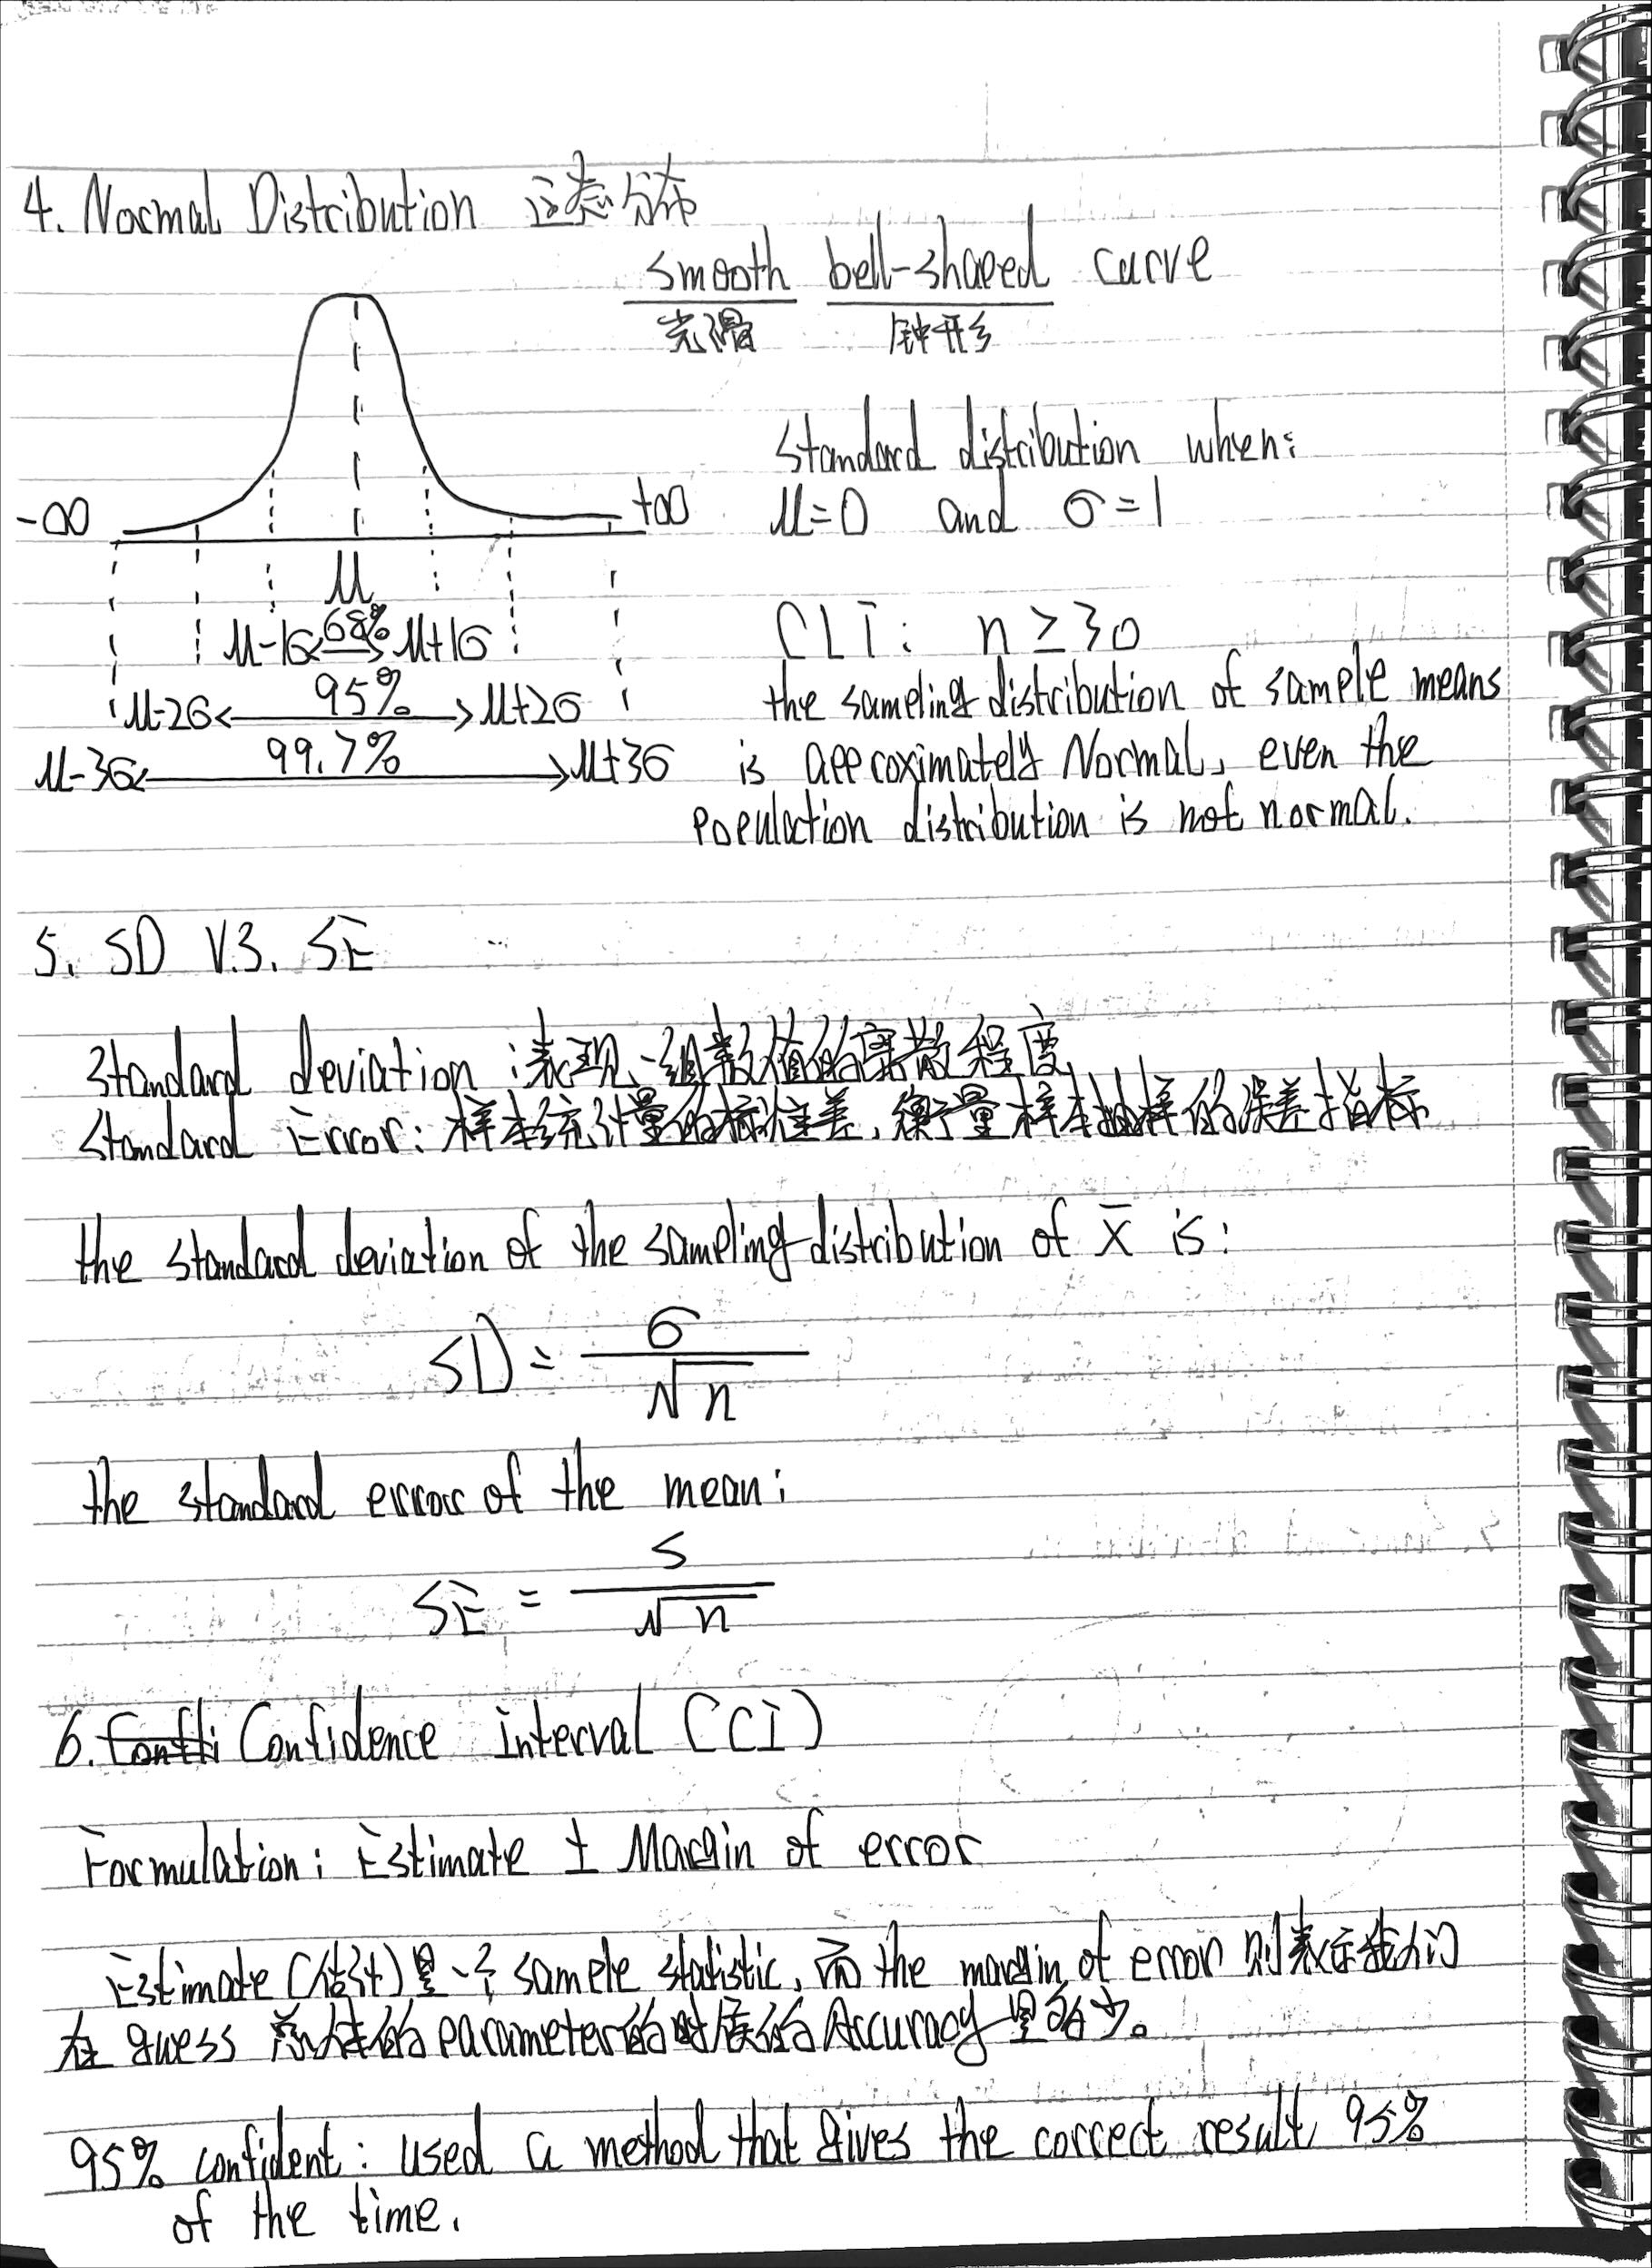 4. Normal Distribution 正态分布
smooth bell-shaped curve
光滑 钟形
standard distribution when:
-∞ +∞ μ=0 and σ=1
μ
CLT: n ≥ 30
μ-1σ 68% μ+1σ
the sampling distribution of sample means
μ-2σ 95% μ+2σ
is approximately Normal, even the
μ-3σ 99.7% μ+3σ
population distribution is not normal.
5. SD V.S. SE
Standard deviation : 表现一组数值的离散程度
Standard Error: 样本统计量的标准差, 衡量样本抽样的误差指标
the standard deviation of the sampling distribution of x̄ is:
SD = σ / √n
the standard error of the mean:
SE = s / √n
6. Confi Confidence interval (CI)
Formulation: Estimate ± Margin of error
Estimate (估计) 是一个 sample statistic, 而 the margin of error 则表示我们
在 guess 总体的 parameter 的时候的 Accuracy 是多少。
95% confident: used a method that gives the correct result 95%
of the time.